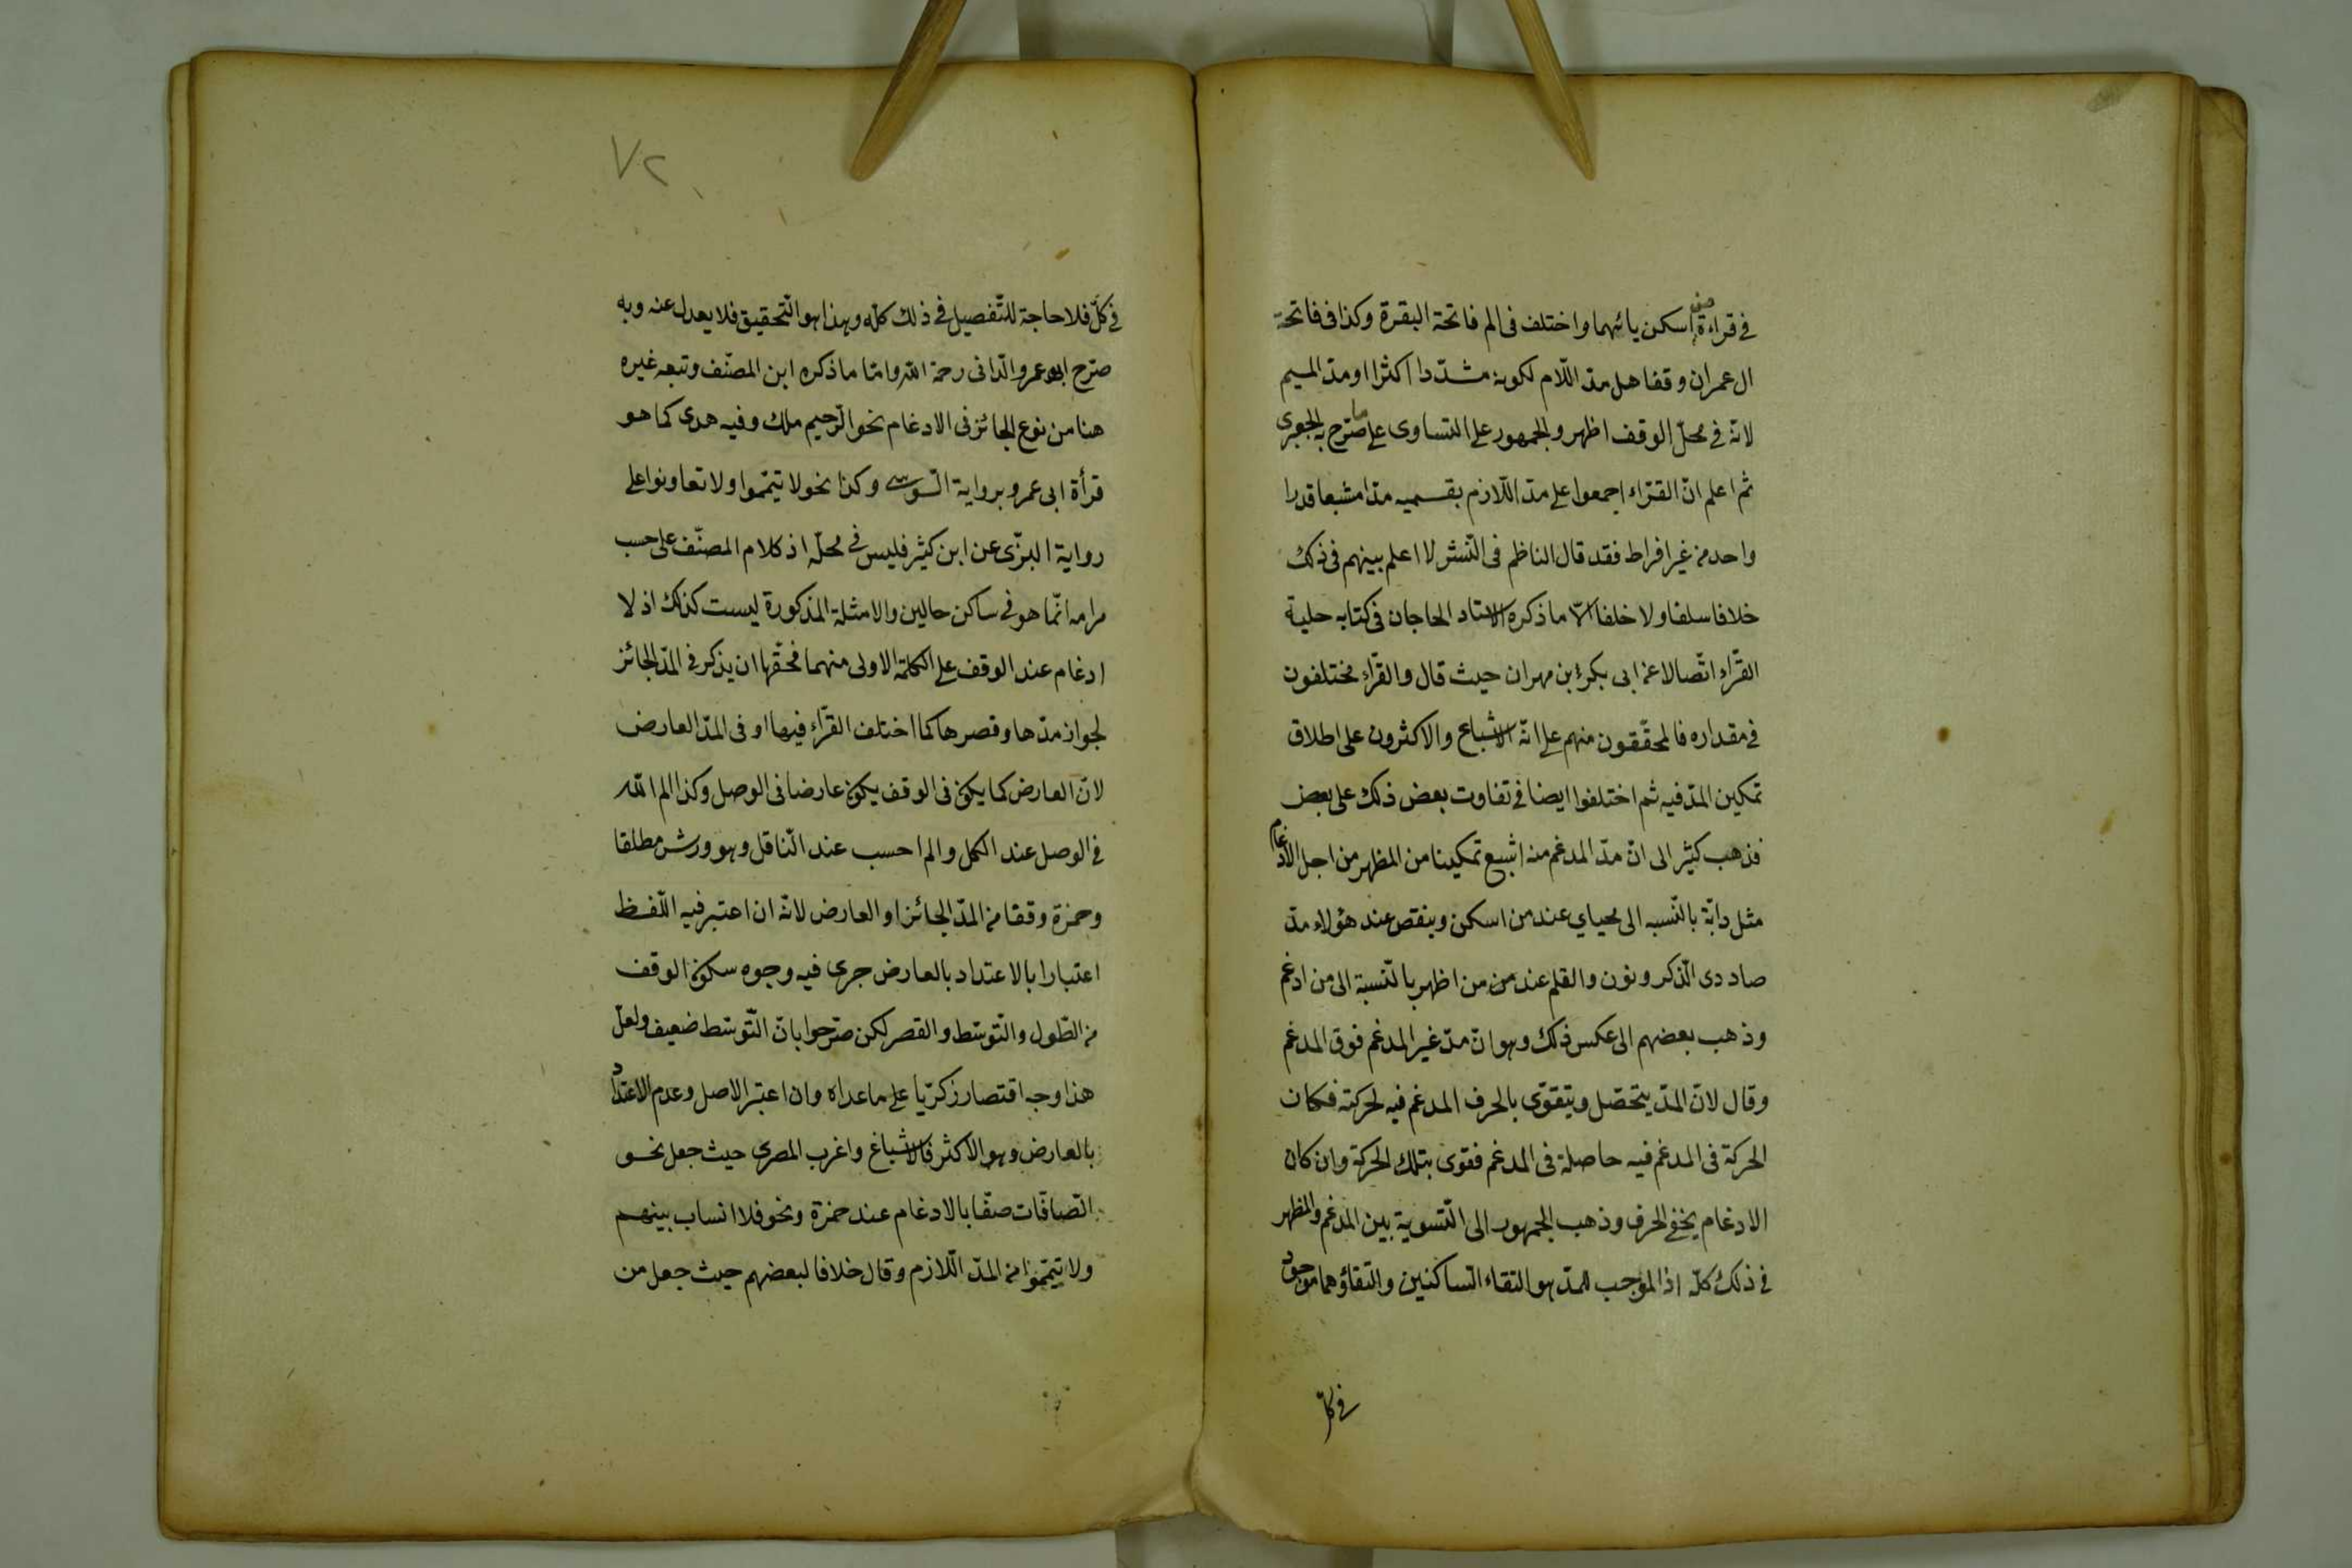 في قراءة من اسكن يائهما واختلف في الم فاتحة البقرة وكذا في فاتحة
ال عمران وقفا هل مدّ اللّام لكونه مشدّدا اكثر او مدّ الميم
لانّه في محلّ الوقف اظهر والجمهور على التساوى على ما صرّح به الجعبرى
ثم اعلم انّ القرّاء اجمعوا على مدّ اللّازم بقسميه مدّا مشبعا قدرا
واحد من غير افراط فقد قال الناظم فى النّشر لا اعلم بينهم فى ذلك
خلافا سلفا ولا خلفا الّا ما ذكره الاستاد الحاجان فى كتابه حلية
القرّاء اتّصالا عن ابى بكر بن مهران حيث قال والقرّاء مختلفون
في مقداره فالمحقّقون منهم على انّه الاشباع والاكثرون على اطلاق
تمكين المدّ فيه ثم اختلفوا ايضا في تفاوت بعض ذلك على بعض
فذهب كثير الى انّ مدّ المدغم منه اشبع تمكينا من المظهر من اجل الادغام
مثل دابّة بالنّسبه الى محياي عند من اسكن وينقص عند هؤلاء مدّ
صاد دى الذّكر ونون والقلم عند من من اظهر بالنّسبة الى من ادغم
وذهب بعضهم الى عكس ذلك وهو انّ مدّ غير المدغم فوق المدغم
وقال لانّ المدّ يتحصّل ويتقوّى بالحرف المدغم فيه لحركته فكان
الحركة فى المدغم فيه حاصلة فى المدغم فقوى بتلك الحركة وان كان
الادغام يخفى الحرف وذهب الجمهور الى التّسوية بين المدغم والمظهر
في ذلك كلّه اذ الموجب للمدّ هو التقاء السّاكنين والتقاؤهما موجود
في كلّ
٧٢
في كلّ فلا حاجة للتّفصيل في ذلك كلّه وهذا هو التّحقيق فلا يعدل عنه وبه
صرّح ابو عمرو الدّانى رحمة الله وامّا ما ذكره ابن المصنّف وتبعه غيره
هنا من نوع الجائز فى الادغام نحو الرّحيم ملك وفيه هدى كما هو
قرأة ابى عمرو برواية السّوسى وكذا نحو لا تيمّموا ولا تعاونوا على
رواية البزّى عن ابن كثير فليس في محلّه اذ كلام المصنّف على حسب
مرامه انّما هو في ساكن حالين والامثلة المذكورة ليست كذلك اذ لا
ادغام عند الوقف على الكلمة الاولى منهما فحقّها ان يذكر في المدّ الجائز
لجواز مدّها وقصرها كما اختلف القرّاء فيها او فى المدّ العارض
لانّ العارض كما يكون فى الوقف يكون عارضا فى الوصل وكذا الم الله
في الوصل عند الكل والم احسب عند النّاقل وهو ورش مطلقا
وحمزة وقفا من المدّ الجائز او العارض لانّه ان اعتبر فيه اللّفظ
اعتبارا بالاعتداد بالعارض جرى فيه وجوه سكون الوقف
من الطّول والتّوسّط والقصر لكن صرّحوا بانّ التّوسّط ضعيف ولعلّ
هذا وجه اقتصار زكريّا على ما عداه وان اعتبر الاصل وعدم الاعتداد
بالعارض وهو الاكثر فالاشباغ واغرب المصرى حيث جعل نحو
الصّافّات صفّا بالادغام عند حمزة ونحو فلا انساب بينهم
ولا تيمّموا من المدّ اللّازم وقال خلافا لبعضهم حيث جعل من